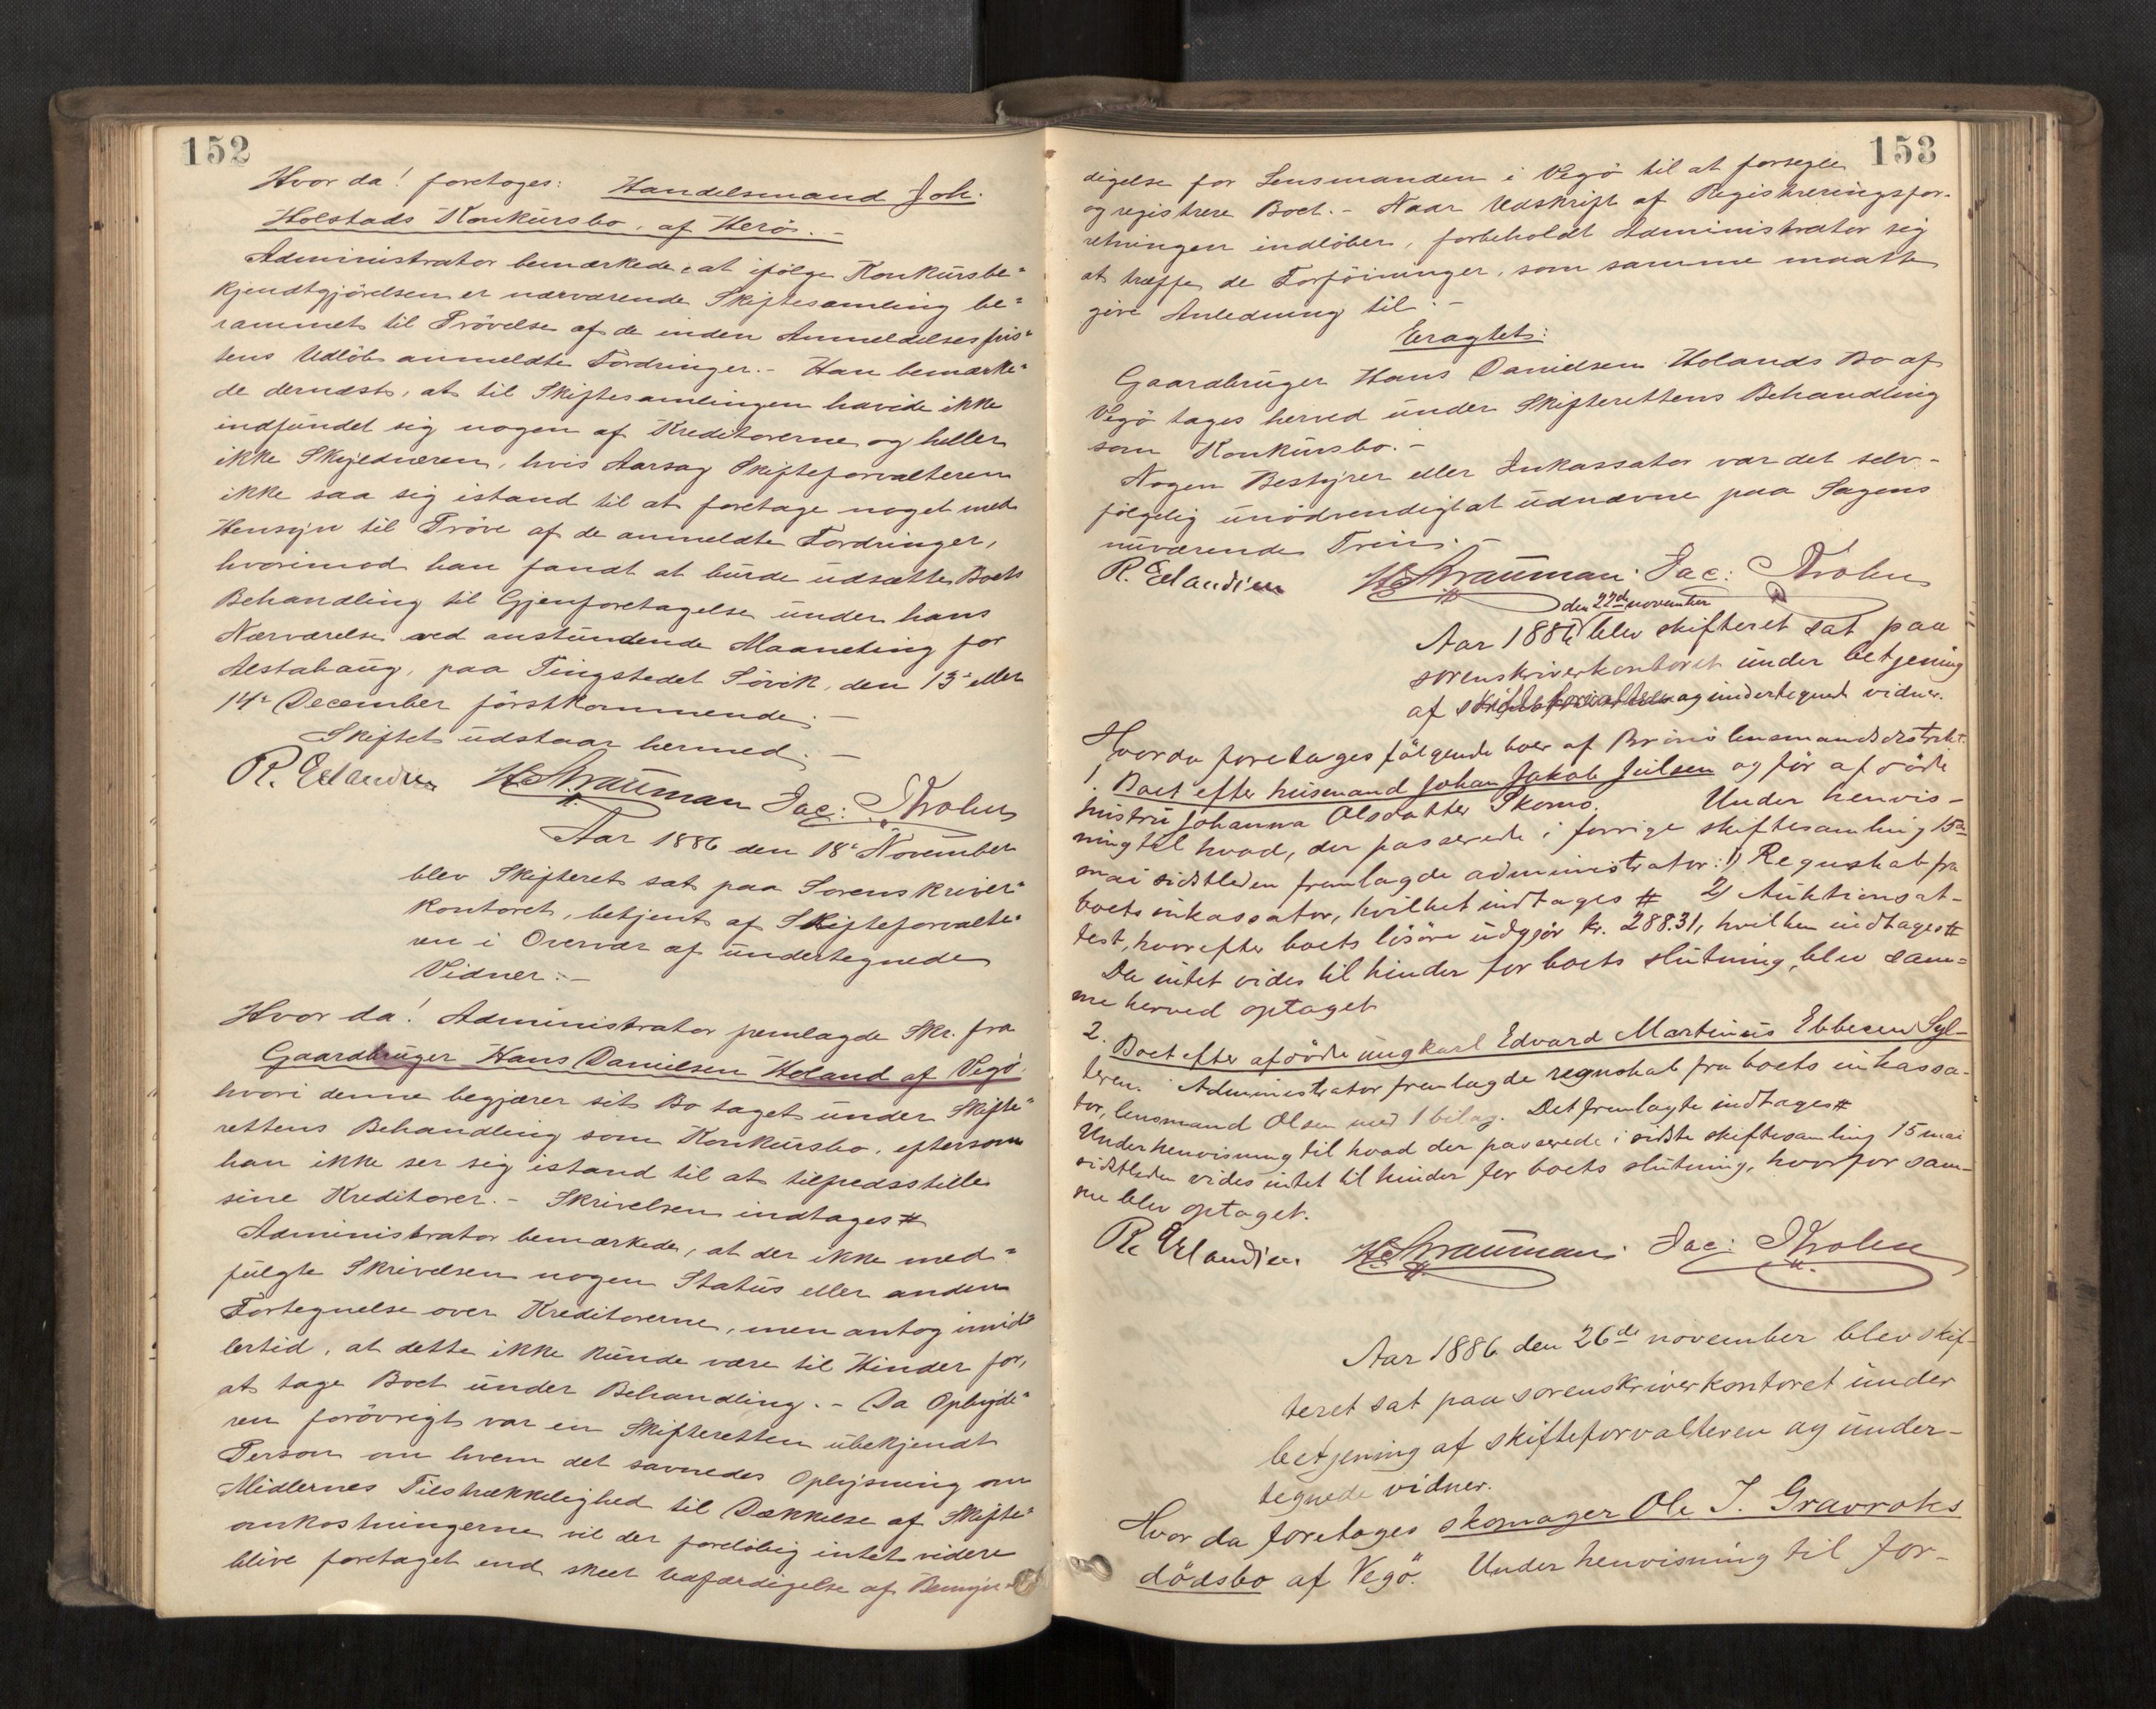 152
Hvor da! foretoges: Handelsmand Joh.
Holstads Konkursbo, af Herø. -
Administrator bemærkede, at ifölge Konkursbe=
kjendtgjörelsen er nærværende Skiftesamling be=
rammet til Prövelse af de inden Anmeldelsesfris=
tens Udlöb anmeldte Fordringer. - Han bemærke=
de dernæst, at til Skiftesamlingen havde ikke
indfundet sig nogen af Kreditorerne og heller
ikke Skyldneren, hvis Aarsag Skifteforvalteren
ikke saa sig istand til at foretage noget med
Hensyn til Pröve af de anmeldte Fordringer,
hvorimod han fandt at burde udsætte Boets
Behandling til Gjenforetagelse under hans
Nærværelse ved anstundende Maaneting for
Alstahaug, paa Tingstedet Sövik, den 13de eller
14de December förstkommende. -
Skiftet udstaar hermed. -
R. Erlandsen H. Strauman Jac: Tholm
Aar 1886 den 18de November
blev Skifteret sat paa Sorenskriver=
kontoret, betjent af Skifteforvalte=
ren i Overvær af undertegnede
Vidner: -
Hvor da! Administrator fremlagde Skr. fra
Gaardbruger Hans Danielsen Holand af Vegö
hvori denne begjærer sit Bo taget under Skifte=
rettens Behandling som Konkursbo, eftersom
han ikke ser sig istand til at tilfredsstille
sine Kreditorer. - Skrivelsen indtages #
Administrator bemærkede, at der ikke med=
fulgte Skrivelsen nogen Status eller anden
Fortegnelse over Kreditorerne, men antog imid=
lertid, at dette ikke kunde være til Hinder for,
at tage Boet under Behandling. - Da Opbyde=
ren forövrigt var en Skifteretten ubekjendt
Person om hvem det savnedes Oplysning om
Midlernes Tilstrækkelighed til Dækkelse af Skifte=
omkostningerne vil der forelöbig intet videre
blive foretaget end skeet Udfærdigelse af Bemyn=
153
digelse for Lensmanden i Vegö til at forsegle
og registrere Boet. - Naar Udskrift af Registreringsfor-
retningen indlöber, forbeholdt Administrator sig
at træffe de Forföininger, som samme maatte
give Anledning til. -
Eragtet:
Gaardbruger Hans Danielsen Holands Bo af
Vegö tages herved under Skifterettens Behandling
som Konkursbo. -
Nogen Bestyrer eller Inkassator var det selv-
fölgelig unödvendigt at udnævne paa Sagens
nuværende Trin. -
R. Erlandsen H. Strauman. Jac: Tholm
den 22de november
Aar 1886 blev skifteret sat paa
sorenskriverkontoret under betjening
af skifteforvalteren og undertegnede vidner.
Hvorda foretages fölgende boer af Brönö lensmandsdistrikt.
1. Boet efter husmand Johan Jakob Juilsen og för afdöde
hustru Johanna Olsdatter Skomo. Under henvis-
ning til hvad, der passerede i forrige skiftesamling 15de
mai sidstleden fremlagde administrator: 1) Regnskab fra
boets inkassator, hvilket indtages # 2) Auktionsat-
test, hvorefter boets lösöre udgjör kr. 288.31, hvilken indtages #
Da intet vides til hinder for boets slutning, blev sam=
me herved optaget
2. Boet efter afdöde ungkarl Edvard Martinus Ebbesen Syl-
teren. Administrator fremlagde regnskab fra boets inkassa-
tor, lensmand Olsen med 1 bilag. Det fremlagte indtages #
Under henvisning til hvad der passerede i sidste skiftesamling 15 mai
sidstleden vides intet til hinder for boets slutning, hvorfor sam-
me blev optaget.
R. Erlandsen H. Strauman. Jac: Tholm
Aar 1886 den 26de november blev skif-
teret sat paa sorenskriverkontoret under
betjening af skifteforvalteren og under-
tegnede vidner.
Hvor da foretoges skomager Ole J. Gravroks
dödsbo af Vegö. Under henvisning til for-